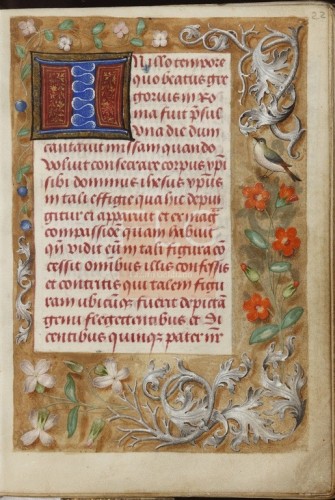 In illo tempore
quo beatus gre
gorius in Ro
ma fuit presul
vna die dum
cantauit missam quando
voluit consecrare corpus xpi
sibi dominus ihesus xpus
in tali effigie qua hic depin
gitur ei apparuit et ex mag
compassione quam habuit
qn vidit eum tali figura con
cessit omibus illis confessis
et contritis qui talem figu
ram ubicunque fuerit depictam
genu flegetentibus et di
centibus quinque pater nr